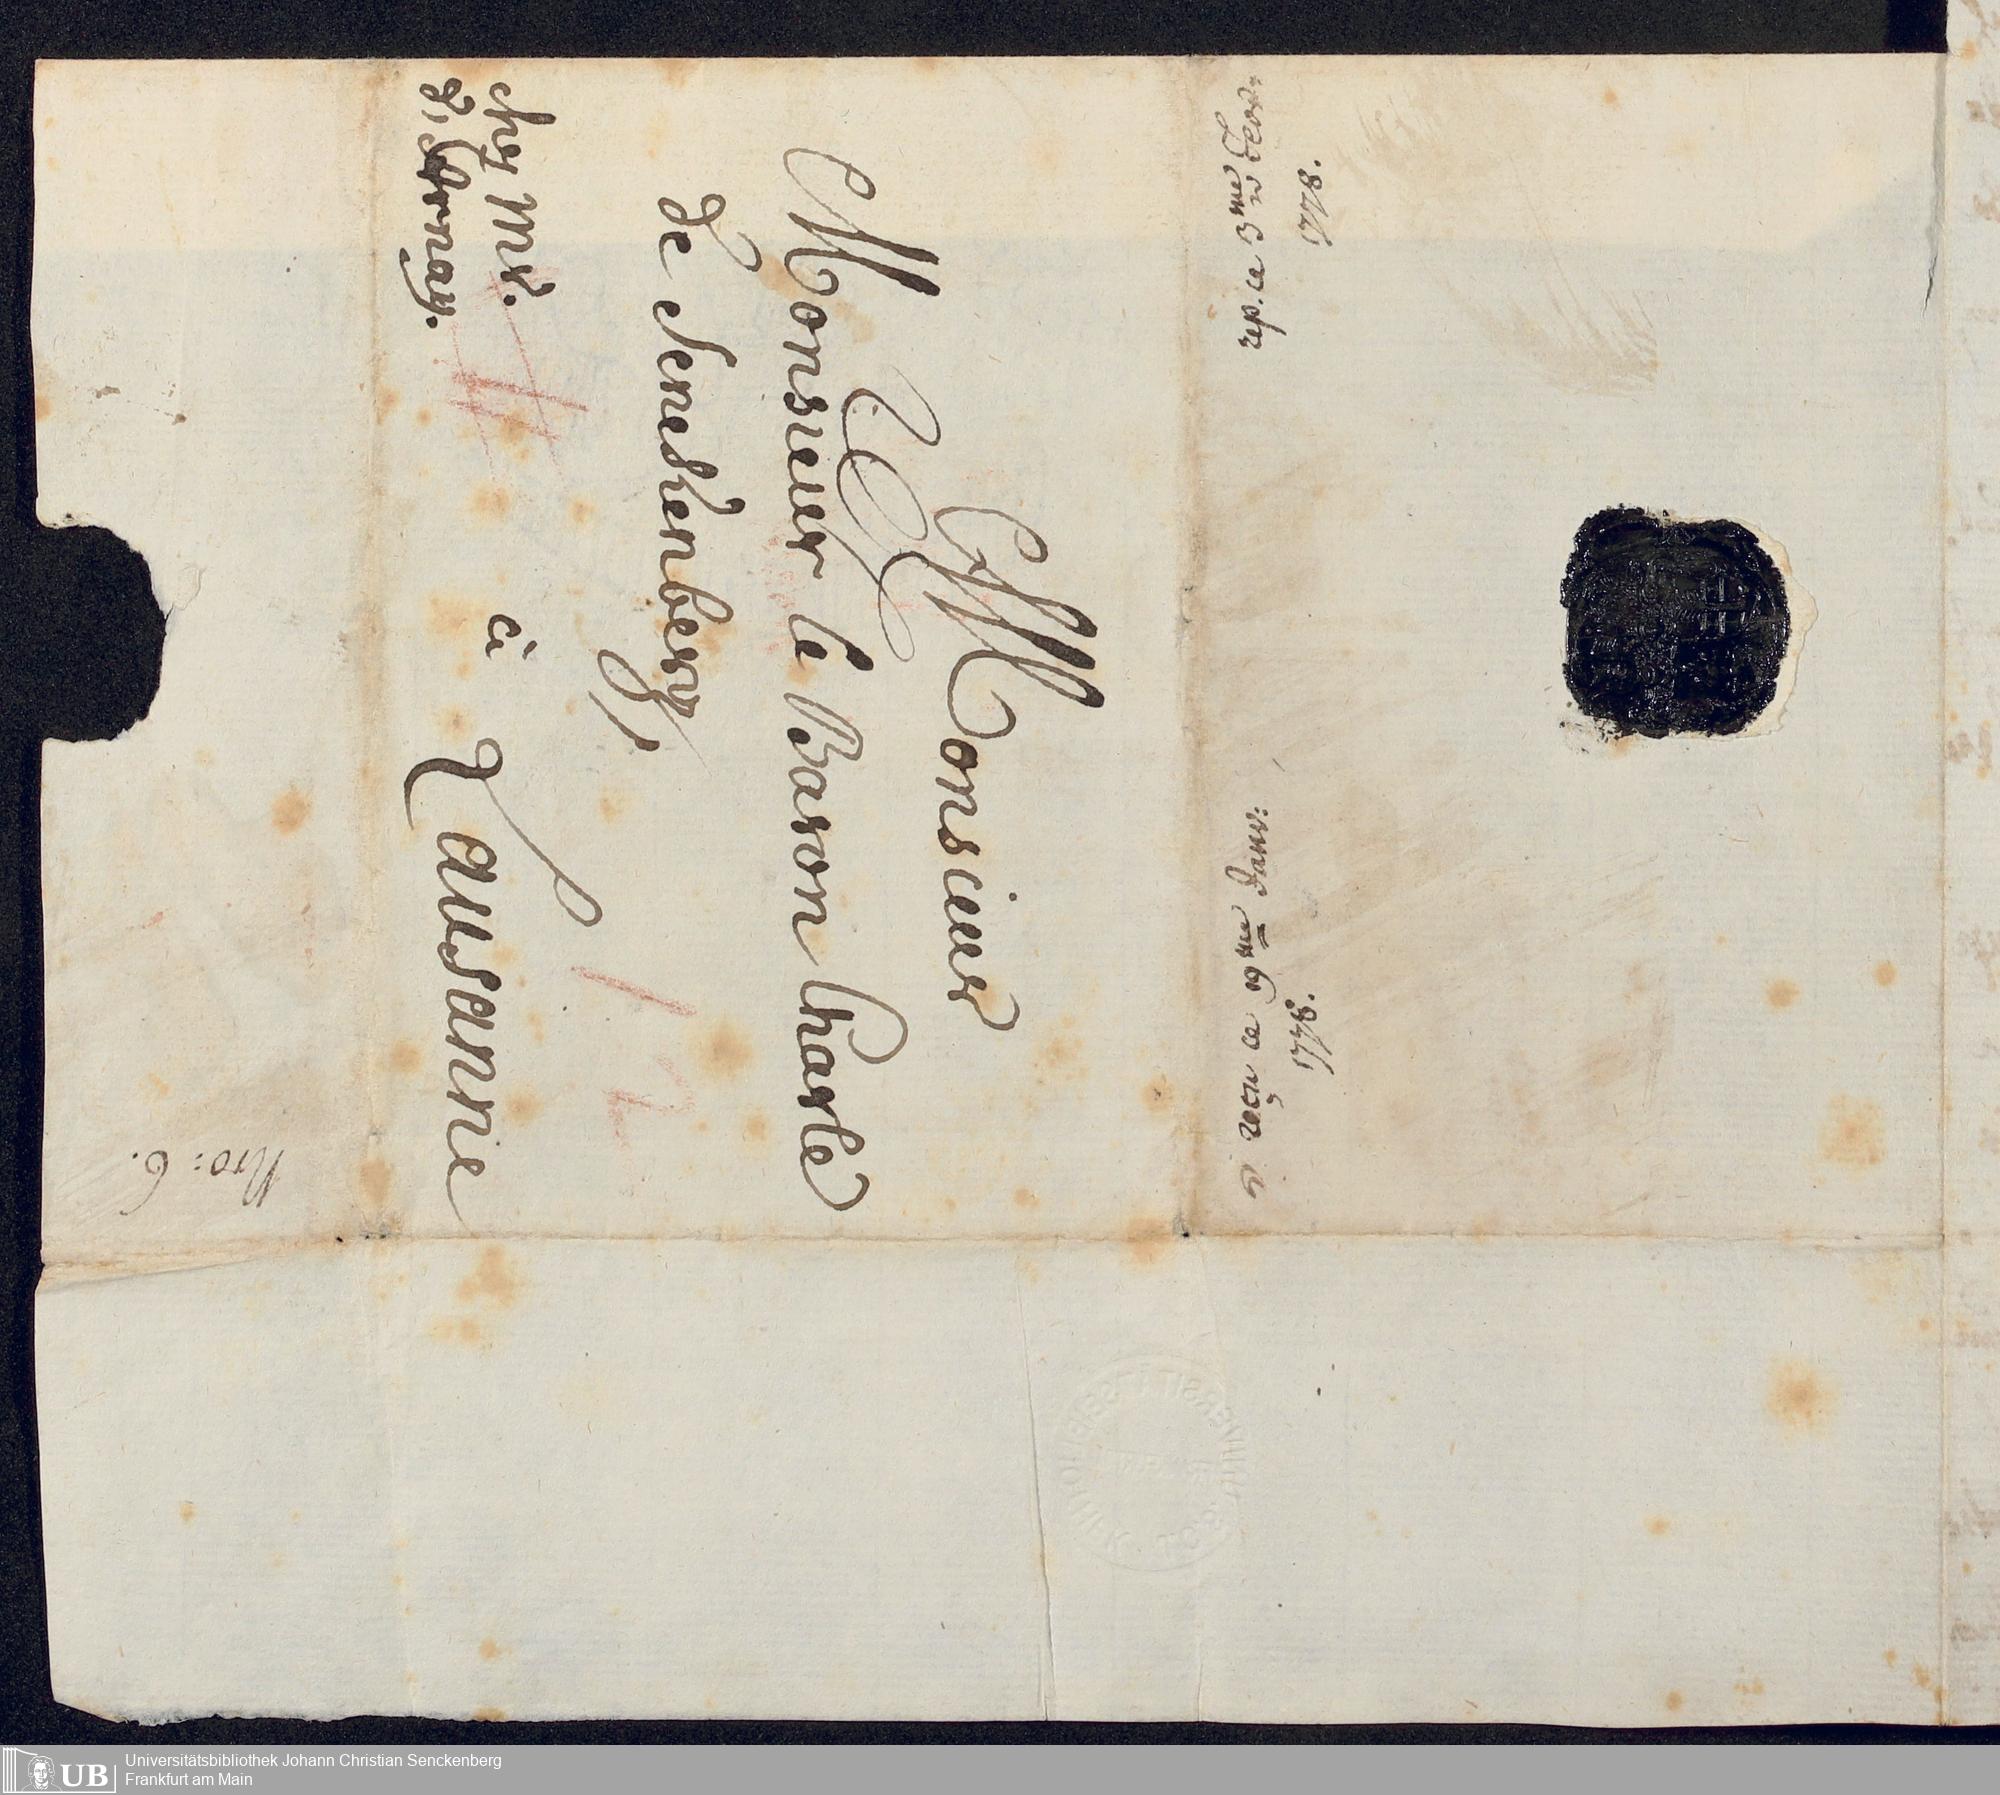 Monsieur
Monsieur le Baron Charle
de Senckenberg
à Lausanne
chez Mr.
d'Arnay.
reçu ce 19me Janv:
1778.
rep. ce 3me Fevr:
1778.
Nro: 6.
UNIVERSITÄTSBIBLIOTHEK
UB
Universitätsbibliothek Johann Christian Senckenberg
Frankfurt am Main